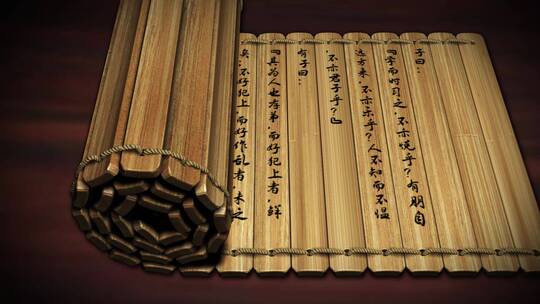 子曰：
『学而时习之，不亦悦乎？有朋自
远方来，不亦乐乎？人不知而不愠
，不亦君子乎？』
有子曰：
『其为人也孝弟，而好犯上者，鲜
矣；不好犯上，而好作乱者，未之